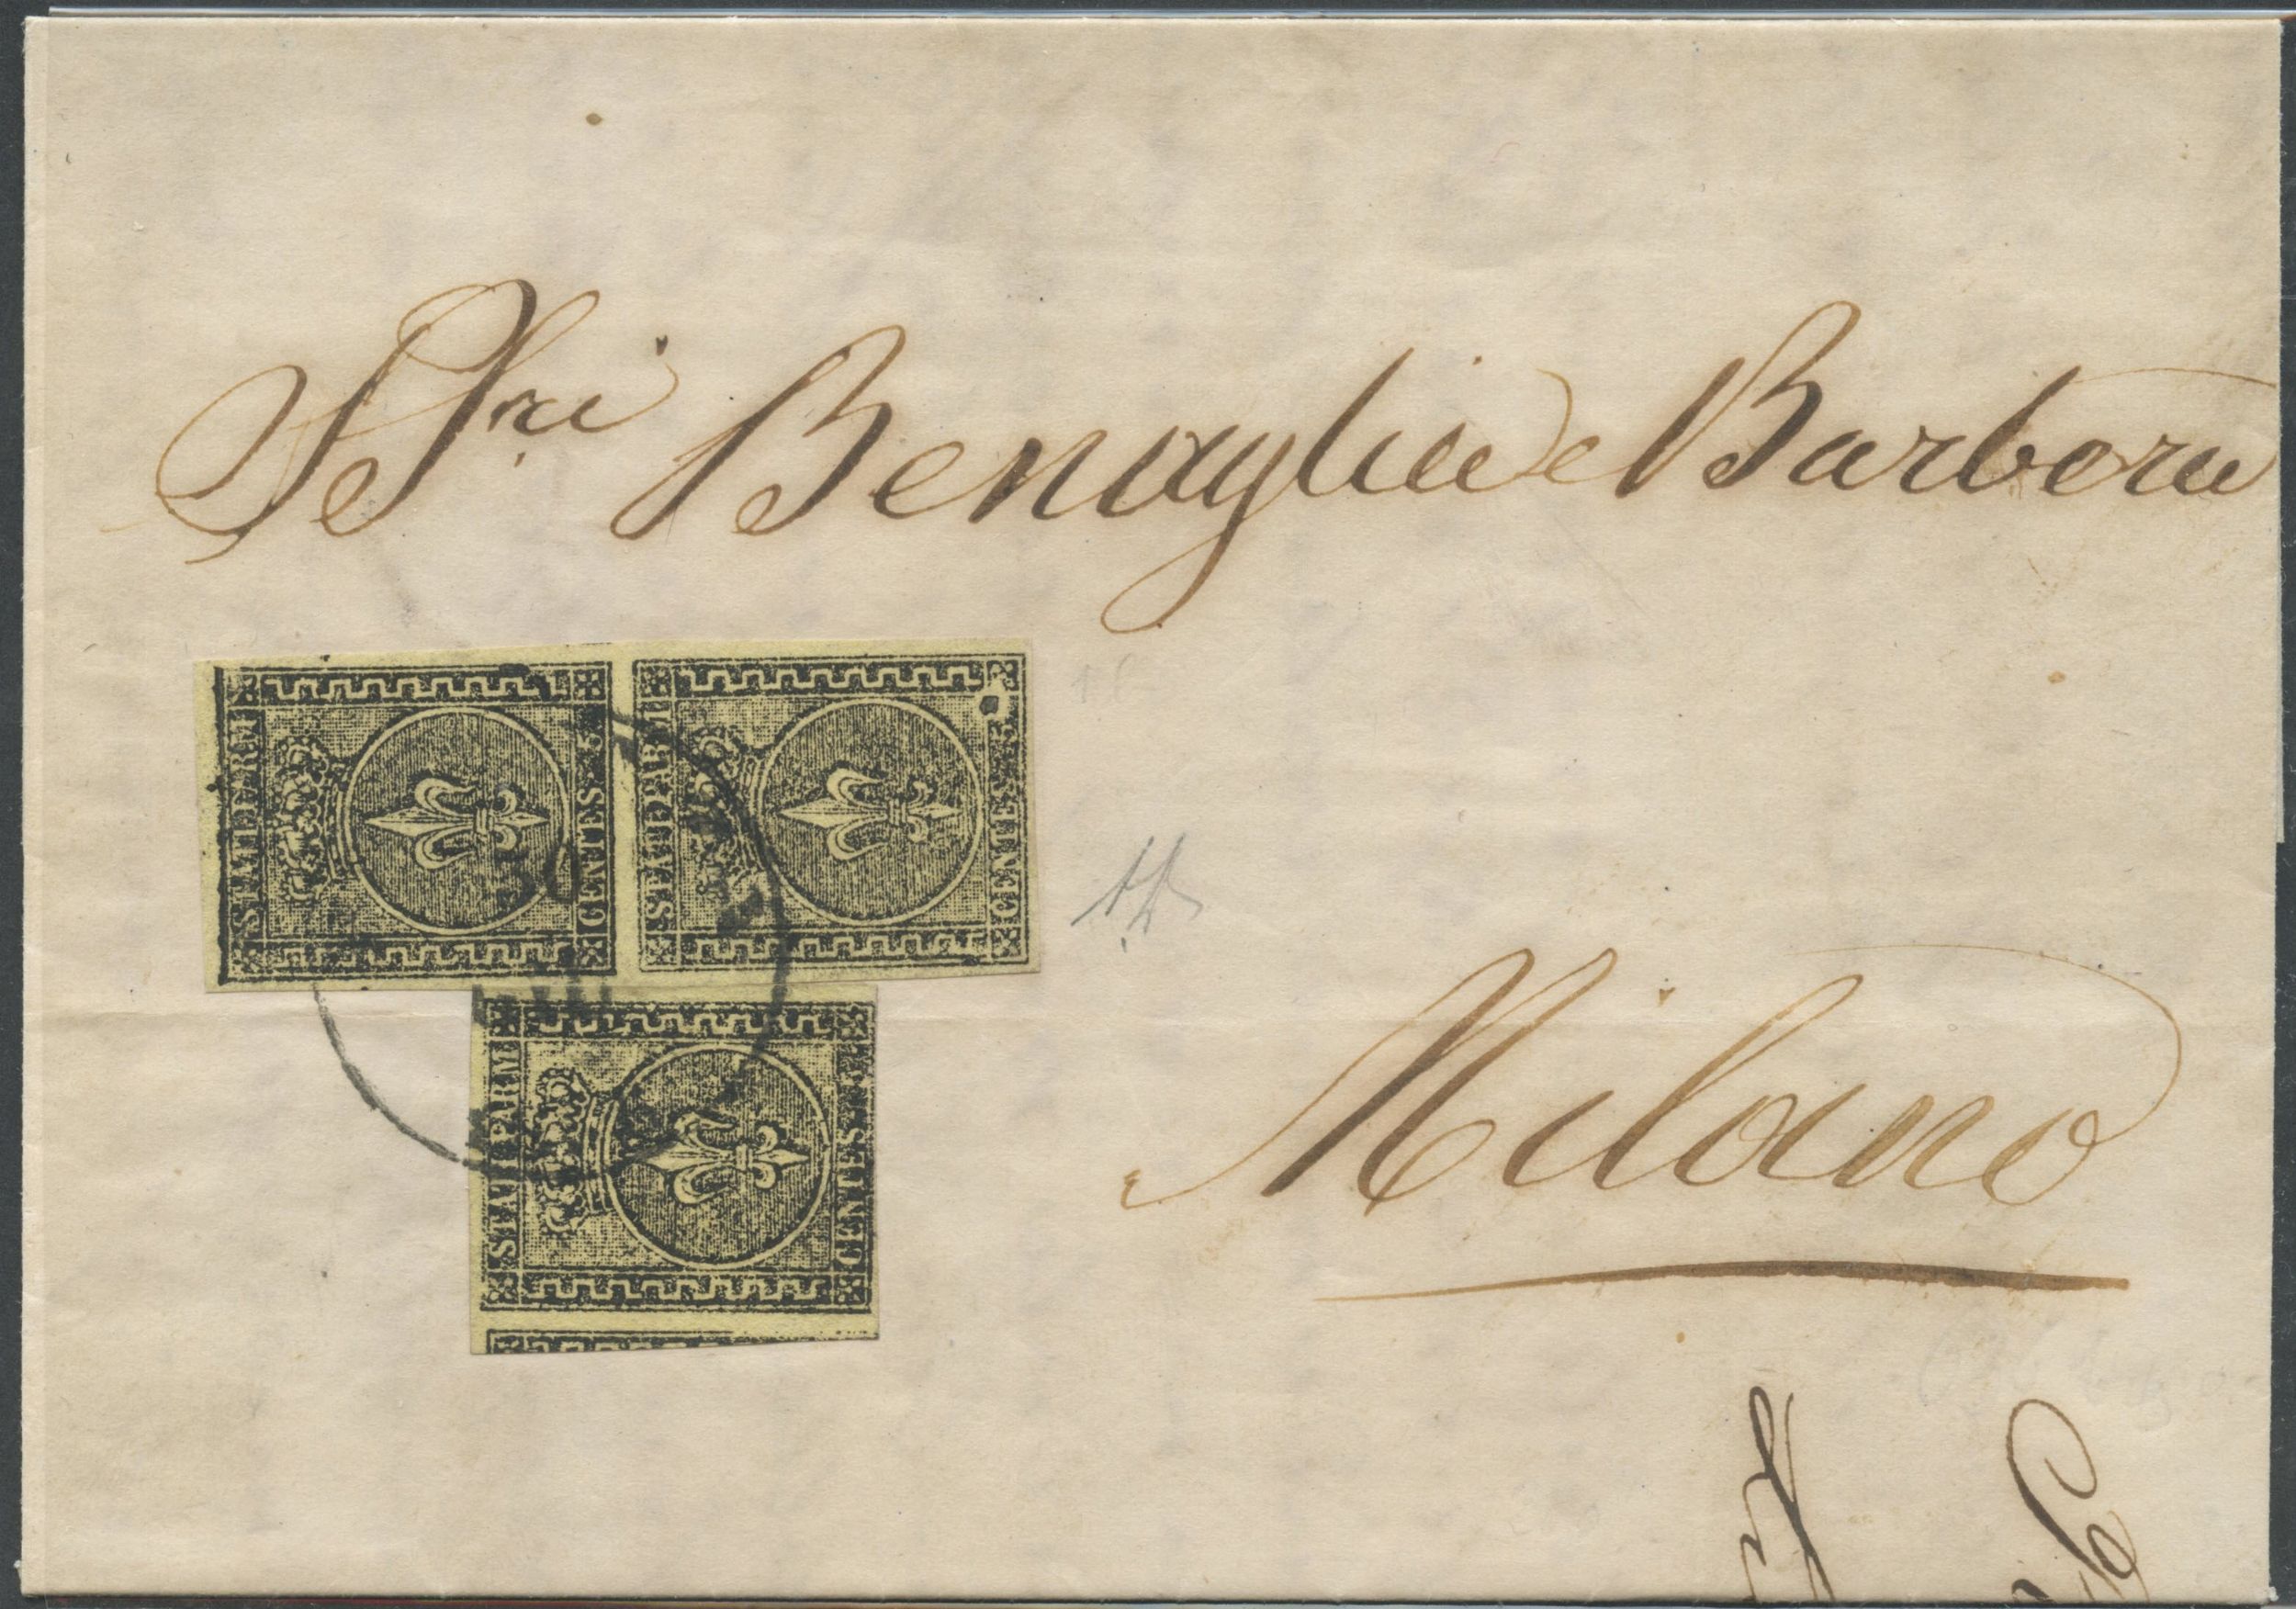 SSri Benaglia e Barbera
STATI PARM
CENTES. 5
STATI PARM
CENTES. 5
STATI PARM
CENTES. 5
Milano